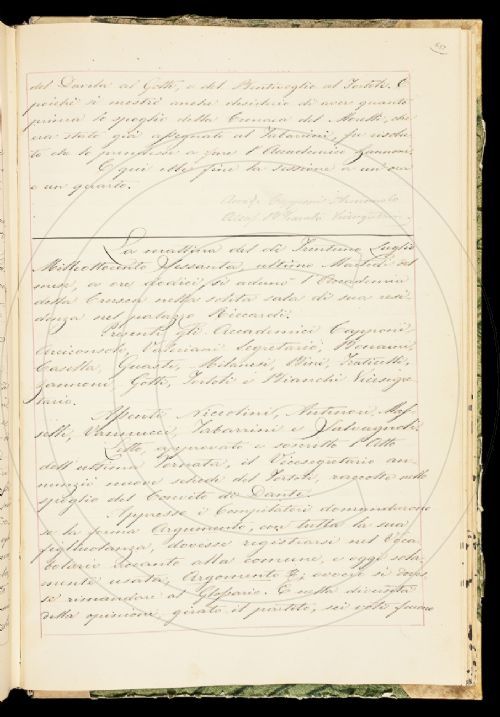 del Davila al Gotti, e del Bentivoglio al Tortoli. E
poichè si mostrò anche desiderio di aver quanto
prima lo spoglio della Cronaca del Morelli, che
era stato già assegnato al Tabarrini, fu risolu-
to che lo prendesse a fare l'Accademico Zannoni.
E qui ebbe fine la sessione a un'ora
e un quarto.
La mattina del dì Trentuno Luglio
Milleottocento Sessanta, ultimo Martedì del
mese, a ore dodici, si adunò l'Accademia
della Crusca nella solita sala di sua resi-
denza nel palazzo Riccardi:
Presenti gli Accademici Capponi,
Arciconsolo, Valeriani Segretario, Bonaini,
Casella, Guasti, Milanesi, Bini,
Zannoni, Gotti, Tortoli e Bianchi Vicesegre-
tario.
Assenti Niccolini, Antinori, Maf-
fei, Vannucci, Tabarrini e Salvagnoli.
Letto, approvato e soscritto l'Atto
dell'ultima Tornata, il Vicesegretario an-
nunziò nuove schede del Tortoli, raccolte nello
spoglio del Convito di Dante.
Appresso i Compilatori domandarono
se la forma Argumento, con tutta la sua
figliuolanza, dovesse registrarsi nel Voca-
bolario accanto alla comune, e oggi sola-
mente usata, Argomento &; ovvero si doves-
se rimandare al Glossario. E nella diversità
delle opinioni, girato il partito, sei voti furono